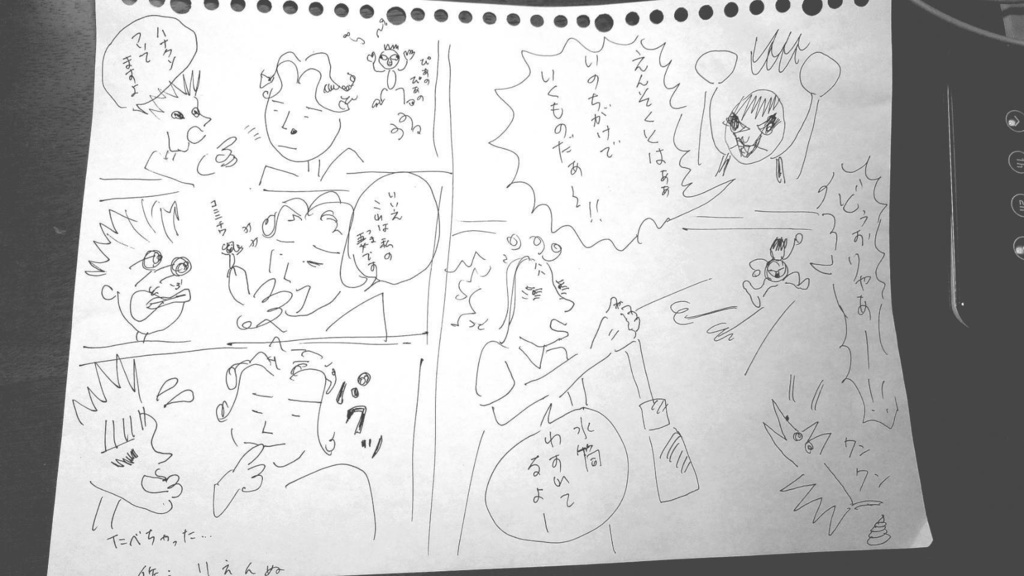 えんそくとはぁぁ
いのちがけで
いくものだぁ〜!!
どぅおりゃぁ
水筒
わすいて
るよー
ワン
ワン
ぴよの
ぴよの
ハナクソ
ついて
ますよ
いいえ
これは私の
妻です
コニチワ
パクッ
たべちゃった…
作:りえんぬ